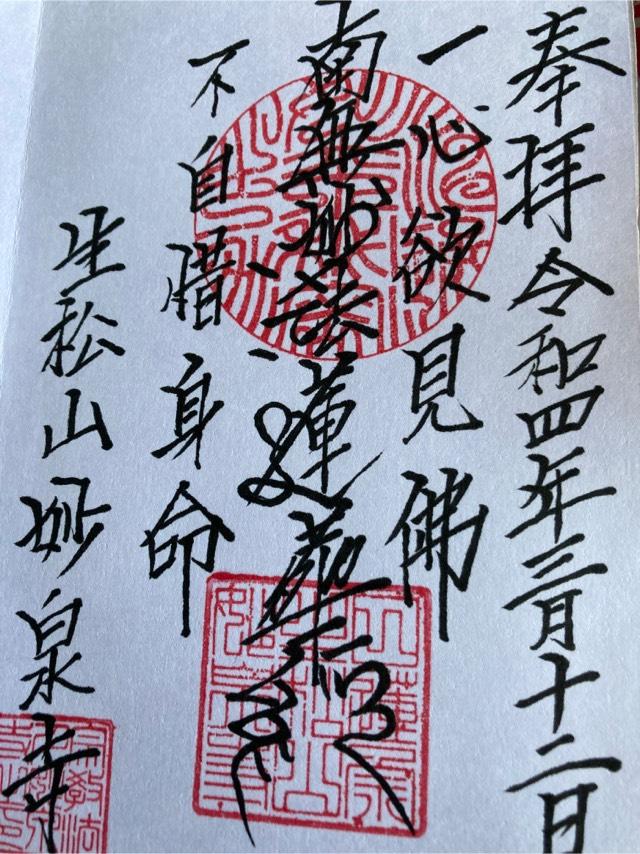 奉拝 令和四年三月十二日
一心欲見佛
南無妙法蓮華経
不自惜身命
生松山妙泉寺